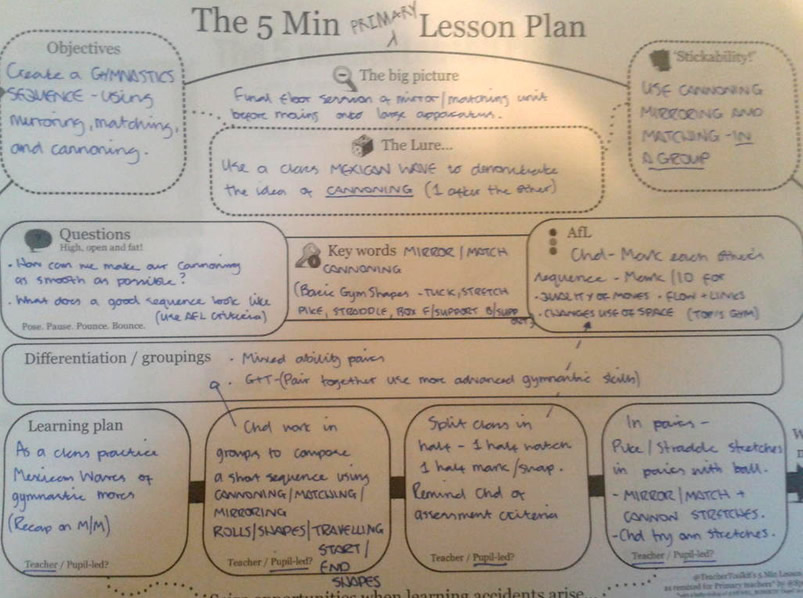 The 5 Min PRIMARY Lesson Plan
Objectives
Create a GYMNASTICS
SEQUENCE - using
mirroring, matching,
and cannoning.
The big picture
Final floor session of mirror/matching unit
before moving onto large apparatus.
The Lure...
Use a class MEXICAN WAVE to demonstrate
the idea of CANNONING (1 after the other)
'Stickability!'
USE CANNONING
MIRRORING AND
MATCHING - IN
A GROUP
Questions
High, open and fat!
• How can we make our cannoning
as smooth as possible?
• What does a good sequence look like
(Use AFL criteria)
Pose. Pause. Pounce. Bounce.
Key words MIRROR/MATCH
CANNONING
(Basic Gym Shapes - TUCK, STRETCH
PIKE, STRADDLE, BOX F/SUPPORT B/SUPP
AfL
Chd - Mark each others
sequence - Mark/10 for
• QUALITY OF MOVES • FLOW + LINKS
• CHANGES USE OF SPACE (TOP'S GYM)
Differentiation / groupings • Mixed ability pairs
• G+T - (Pair together use more advanced gymnastic skills)
Learning plan
As a class practice
Mexican Waves of
gymnastic moves
(Recap on M/M)
Teacher / Pupil-led?
Chd work in
groups to compose
a short sequence using
CANNONING/MATCHING/
MIRRORING
ROLLS/SHAPES/TRAVELLING
START/
END
SHAPES
Teacher / Pupil-led?
Split class in
half - 1 half watch
1 half mark/swap.
Remind Chd of
assessment criteria
Teacher / Pupil-led?
In pairs -
Pike/Straddle stretches
in pairs with ball.
- MIRROR/MATCH +
CANNON STRETCHES.
- Chd try own stretches.
Teacher / Pupil-led?
@TeacherToolkit's 5 Min Lesson
as remixed for Primary teachers" by
opportunities when learning accidents arise...